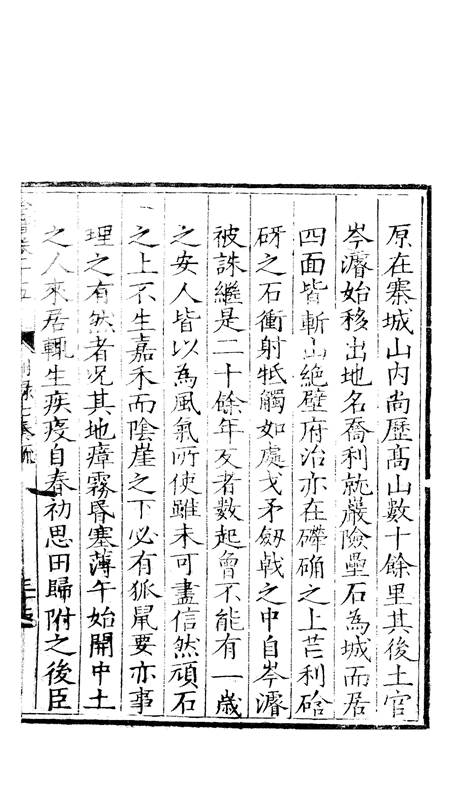 原在寨城山内尚歷髙山數十餘里其後土官
岑濬始移出地名喬利就巖險壘石為城而居
四面皆斬山絶壁府治亦在磽确之上芒利硲
砑之石衝射牴觸如處戈矛劒戟之中自岑濬
被誅繼是二十餘年反者數起曾不能有一歲
之安人皆以為風氣所使雖未可盡信然頑石
之上不生嘉禾而陰崖之下必有狐鼠要亦事
理之有然者况其地瘴霧昬塞薄午始開中土
之人來居輒生疾疫自春初思田歸附之後臣